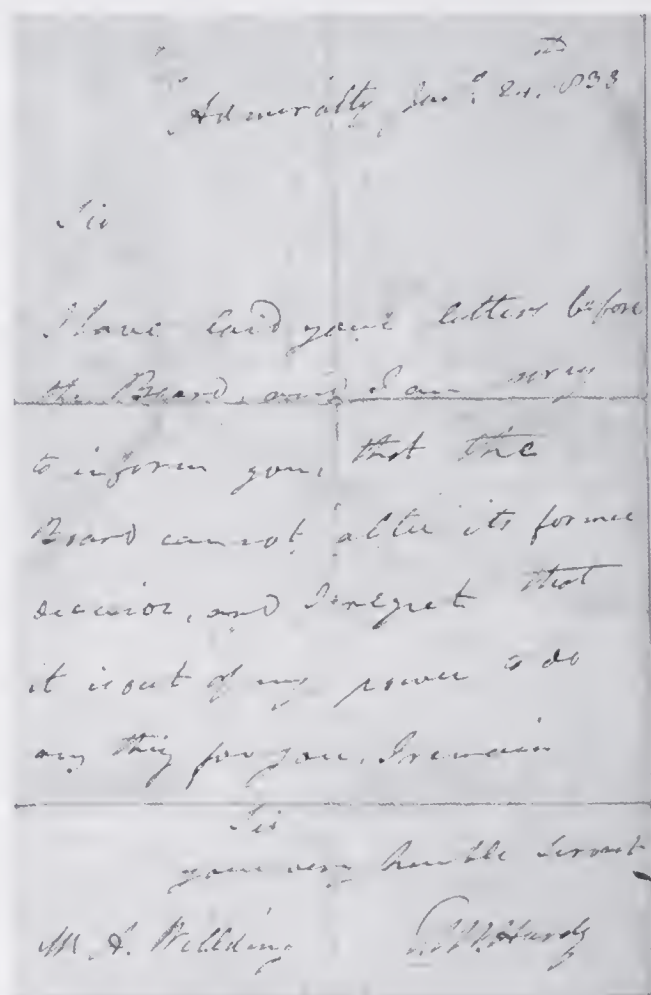 Admiralty, Jany. 24th 1833
Sir
I have laid your letters before
the Board, and I am sorry
to inform you, that the
Board cannot alter its former
decision, and I regret that
it is out of my power to do
any thing for you, I remain
Sir
your very humble Servant
T. M. Hardy